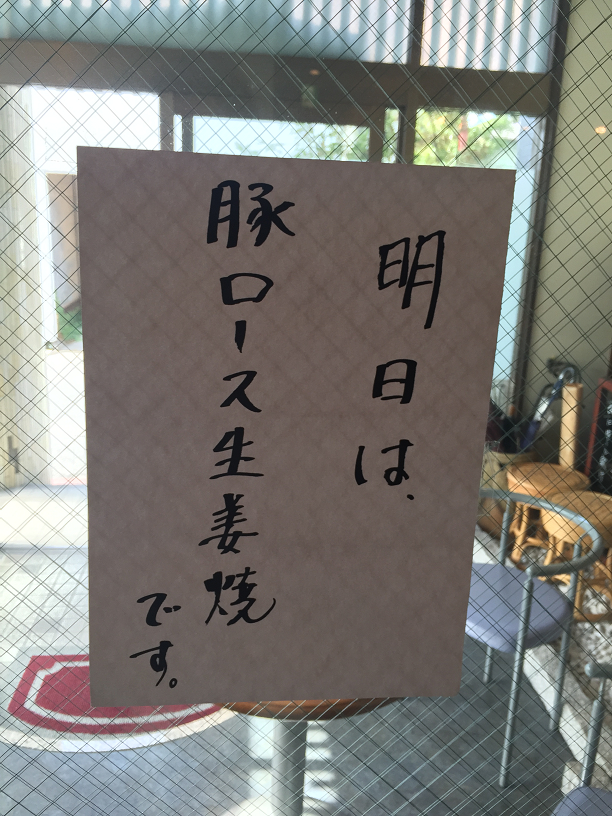 明日は、
豚ロース生姜焼
です。